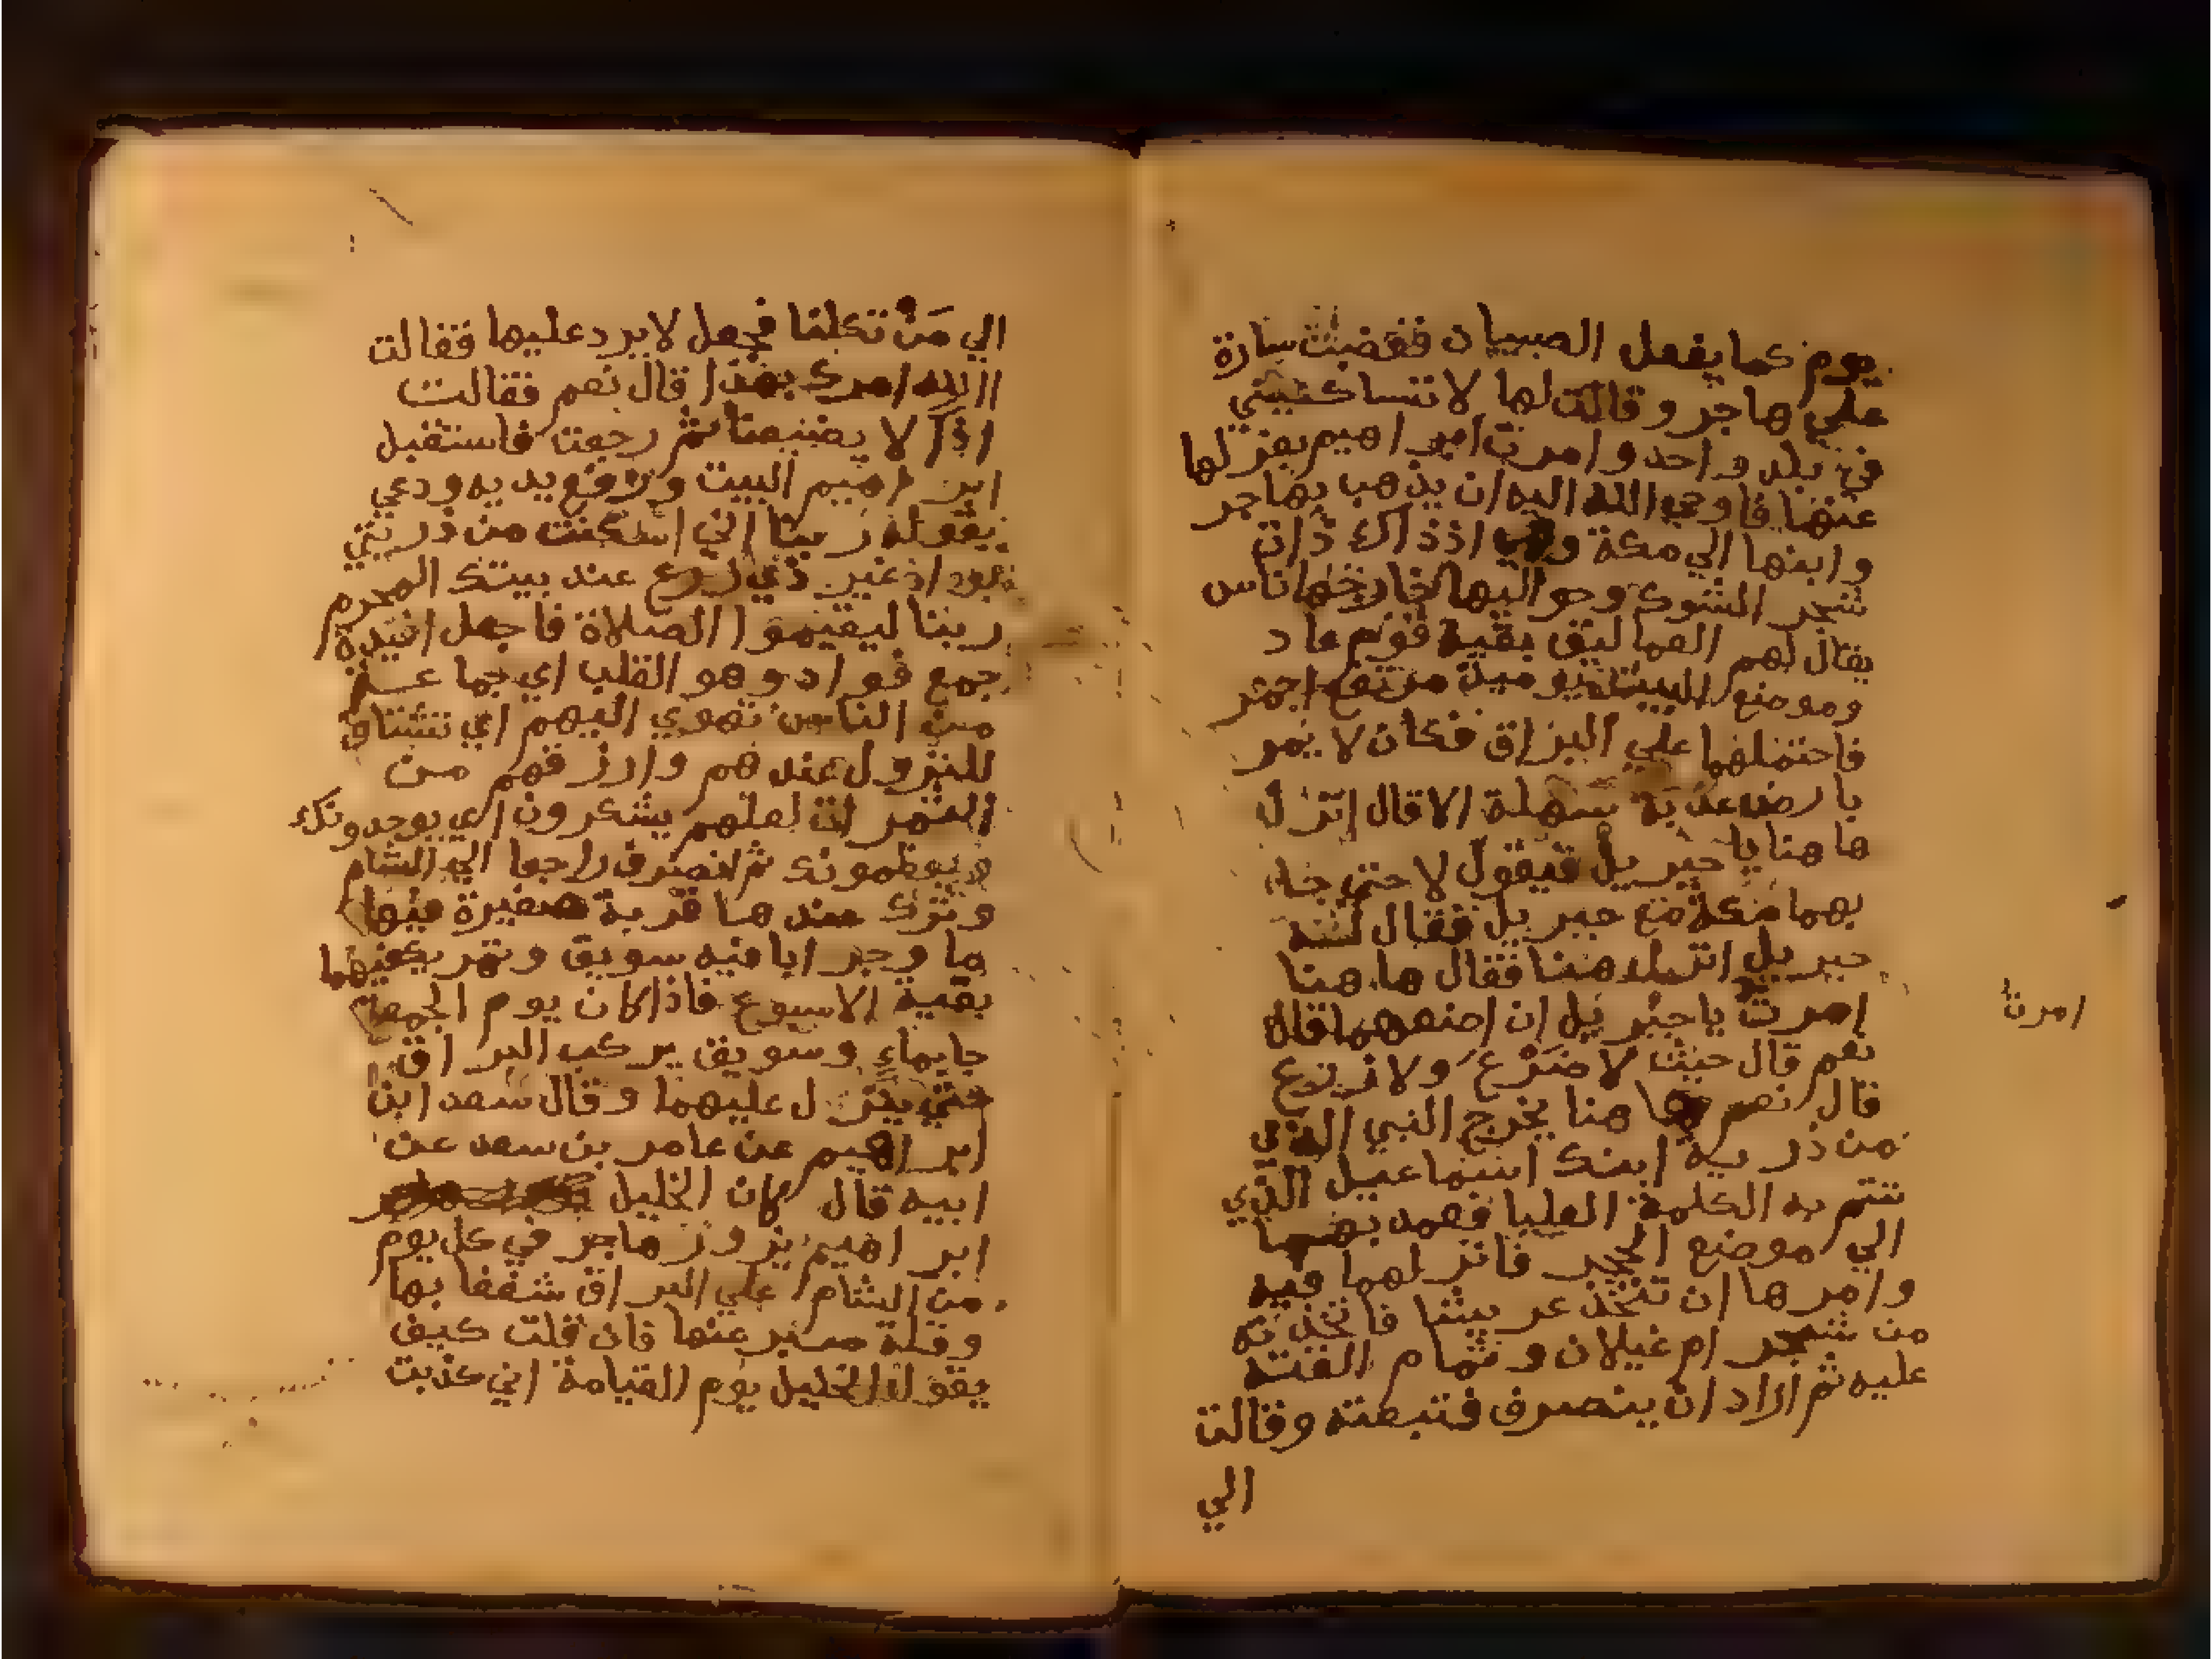 يوم كما يفعل الصبيان فغضبت سارة
علي هاجر و قالت لها لا تساكنيني
في بلد واحد و امرت ابراهيم يعزلها
عنها فاوحي الله اليه ان يذهب بهاجر
و ابنها الي مكة وهي اذ ذاك ذات
شجر الشوك وحواليها خارجها ناس
يقال لهم العماليق بقية قوم عاد
وموضع البيت يوميذ مرتفع احمر
فاحتملهما علي البراق فكان لا يمر
بارض عذبة سهلة الا قال انزل
ها هنا يا جبريل فيقول لا حتي جا
بهما مكة مع جبريل فقال له
جبريل انزل هنا فقال ها هنا
امرت يا جبريل ان اضعهما قال
نعم قال حيث لا ضَرْع ولا زرع
قال نعم ها هنا يخرج النبي الذي
من ذرية ابنك اسماعيل الذي
تتم به الكلمة العليا فعمد بهما
الي موضع الحجر فانزلهما فيه
وامرها ان تتخذ عريشا فاتخذته
من شجر ام غيلان و ثمام القته
عليه ثم اراد ان ينصرف فتبعته وقالت
الي
امرت
الي مَنْ تكلنا فجعل لا يرد عليها فقالت
االله امرك بهذا قال نعم فقالت
اذًا لا يضيعنا ثم رجعت فاستقبل
ابراهيم البيت و رفع يديه ودعي
بقوله ربنا اني اسكنت من ذريتي
بواد غير ذي زرع عند بيتك المحرم
ربنا ليقيموا الصلاة فاجعل افيدة
جمع فواد وهو القلب اي جماعة
من الناس تهوي اليهم اي تشتاق
للنزول عندهم وارزقهم من
الثمرات لعلهم يشكرون اي يوحدونك
ويعظمونك ثم انصرف راجعا الي الشام
وترك عندها قربة صغيرة فيها
ما و جرابا فيه سويق وتمر يكفيهما
بقية الاسبوع فاذا كان يوم الجمعة
جا بماء وسويق يركب البراق
حتي ينزل عليهما وقال سعد ابن
ابراهيم عن عامر بن سعد عن
ابيه قال كان الخليل
ابراهيم يزور هاجر في كل يوم
من الشام علي البراق شغفا بها
وقلة صبر عنها فان قلت كيف
يقول الخليل يوم القيامة اني كذبت